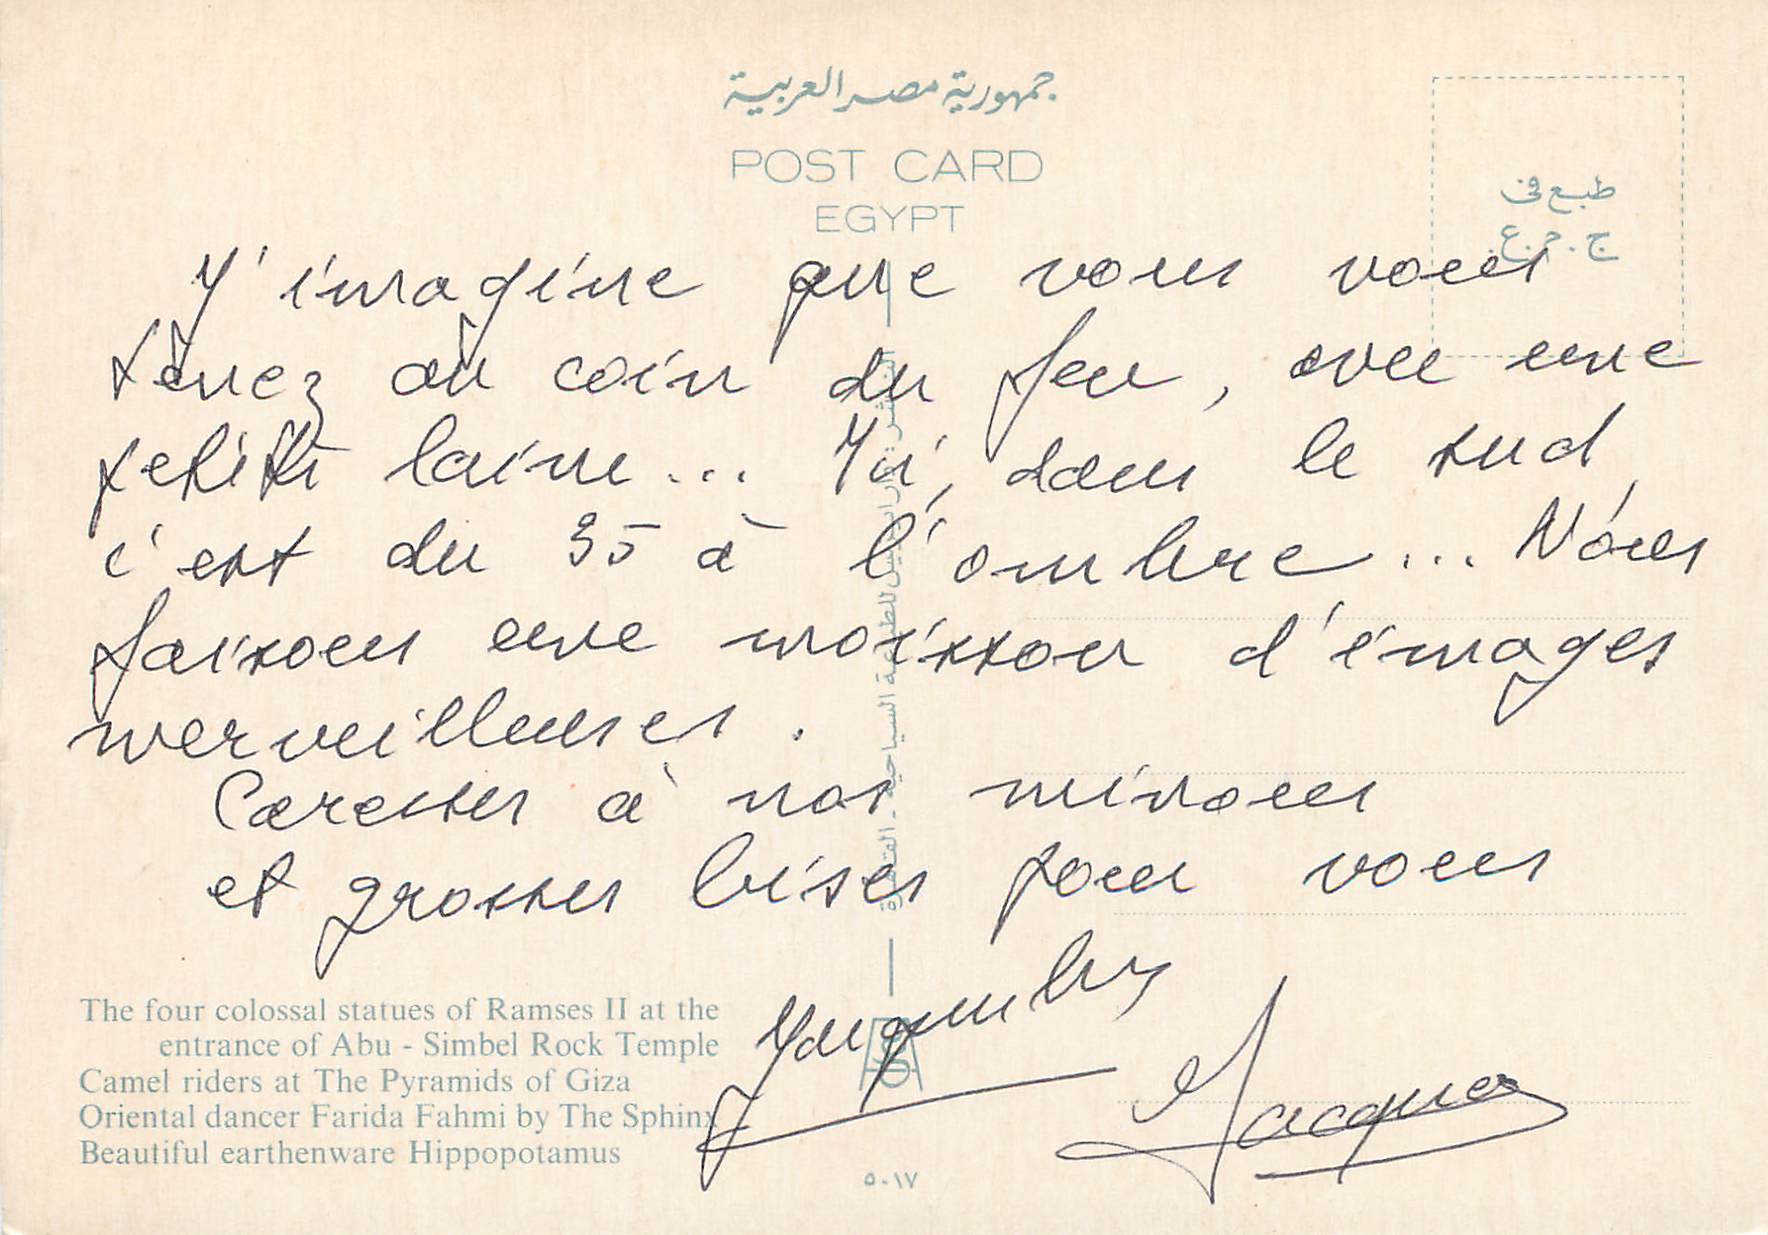 جمهورية مصر العربية
POST CARD
EGYPT
طبع في
ج.م.ع.
J'imagine que vous vous
tenez au coin du feu, avec une
petite laine... Ici, dans le sud,
c'est du 35 à l'ombre... Nous
faisons une moisson d'images
merveilleuses.
Caresses à nos minous
et grosses bises pour vous
Jacques
The four colossal statues of Ramses II at the
entrance of Abu - Simbel Rock Temple
Camel riders at The Pyramids of Giza
Oriental dancer Farida Fahmi by The Sphinx
Beautiful earthenware Hippopotamus
٥٠١٧